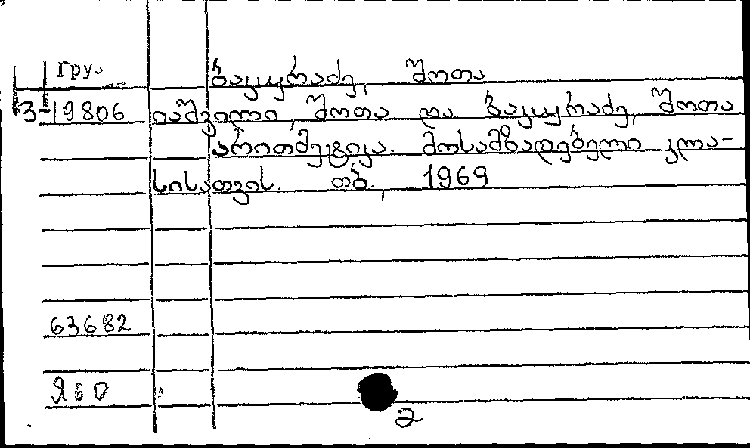 Груз
ბაკურაძე, შოთა
3-19806 იაშვილი, შოთა და ბაკურაძე, შოთა
არითმეტიკა. მოსამზადებელი კლა-
სისათვის. თბ., 1969
63682